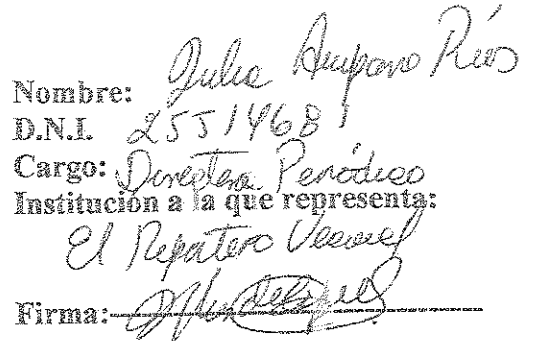 Nombre: Julia Amparo Ríos
D.N.I. 25514681
Cargo: Directora Periódico
Institución a la que representa:
El Reportero Vecinal
Firma: